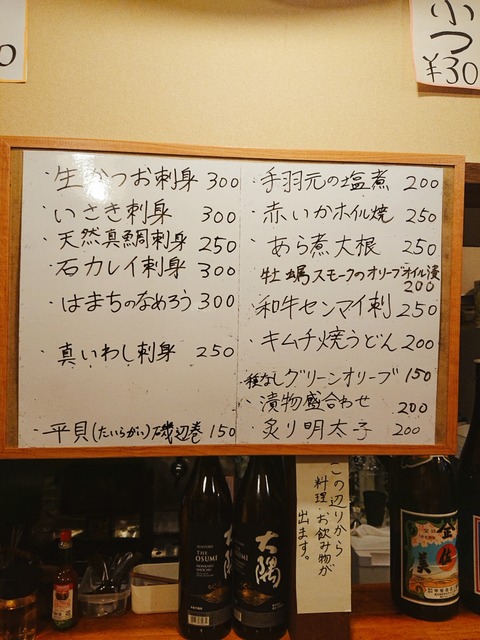 0
小
つ
¥30
・生かつお刺身 300
・いさき刺身 300
・天然真鯛刺身 250
・石カレイ刺身 300
・はまちのなめろう 300
・真いわし刺身 250
・平貝(たいらがい)磯辺巻 150
・手羽元の塩煮 200
・赤いかホイル焼 250
・あら煮大根 250
牡蠣スモークのオリーブオイル漬
200
・和牛センマイ刺 250
・キムチ焼うどん 200
種なしグリーンオリーブ 150
・漬物盛合わせ 200
・炙り明太子 200
この辺りから
料理・お飲み物が
出ます。
THE
OSUMI
大隅
大隅